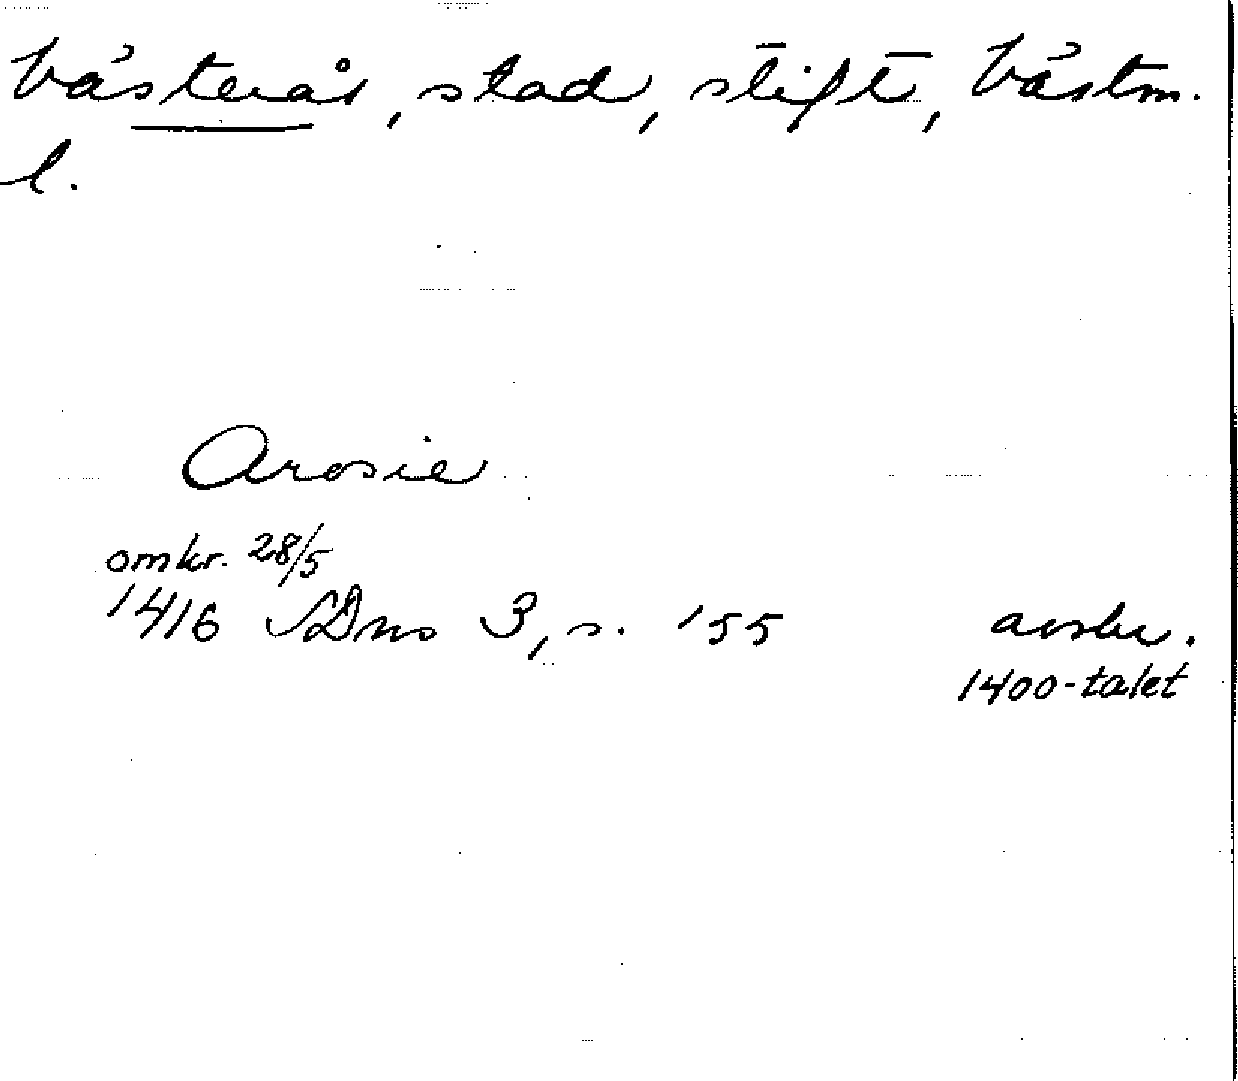 Västerås, stad, stift, Västm.
l.
Arosie
omkr. 28/5
1416 SDns 3, s. 155 avskr.
1400-talet